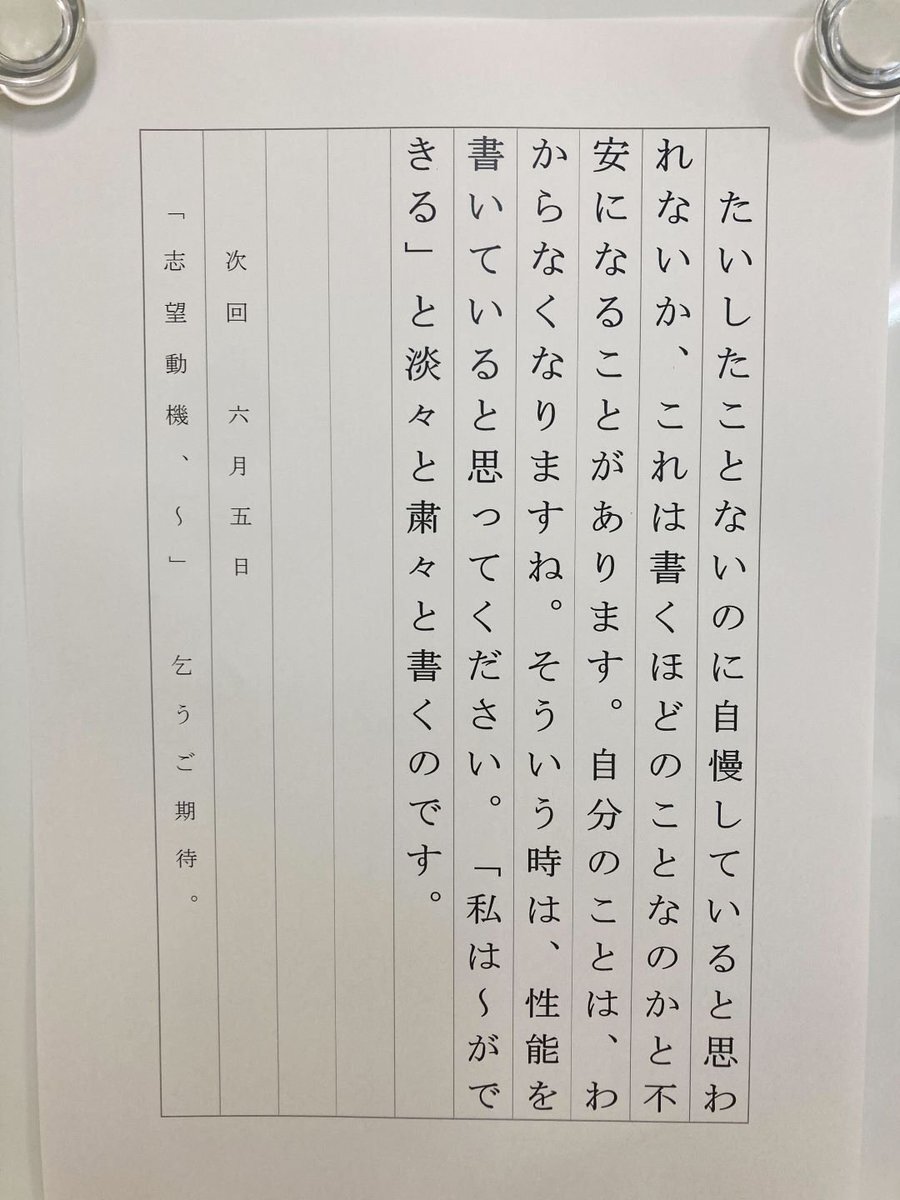 たいしたことないのに自慢していると思わ
れないか、これは書くほどのことなのかと不
安になることがあります。自分のことは、わ
からなくなりますね。そういう時は、性能を
書いていると思ってください。「私は～がで
きる」と淡々と粛々と書くのです。
次回　六月五日
「志望動機、～」　乞うご期待。